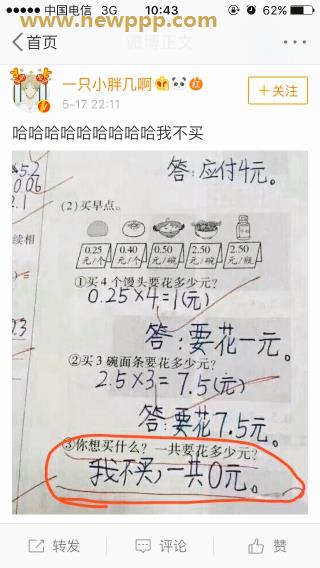 中国电信 3G 10:43 62%
www.newppp.com
首页 微博正文
一只小胖几啊
5-17 22:11
+关注
哈哈哈哈哈哈哈哈哈我不买
答:应付4元。
(2)买早点。
0.25元/个 0.40元/个 0.50元/碗 2.50元/碗 2.50元/瓶
续相
①买4个馒头要花多少元?
0.25×4=1(元)
答:要花一元。
②买3碗面条要花多少元?
2.5×3=7.5(元)
答:要花7.5元。
③你想买什么?一共要花多少元?
我不买,一共0元。
转发 评论 赞